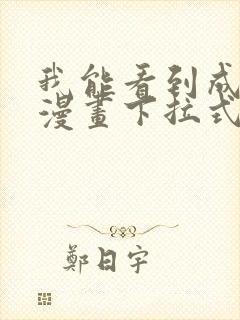 我能看到成
漫畫下拉式
鄭日宇